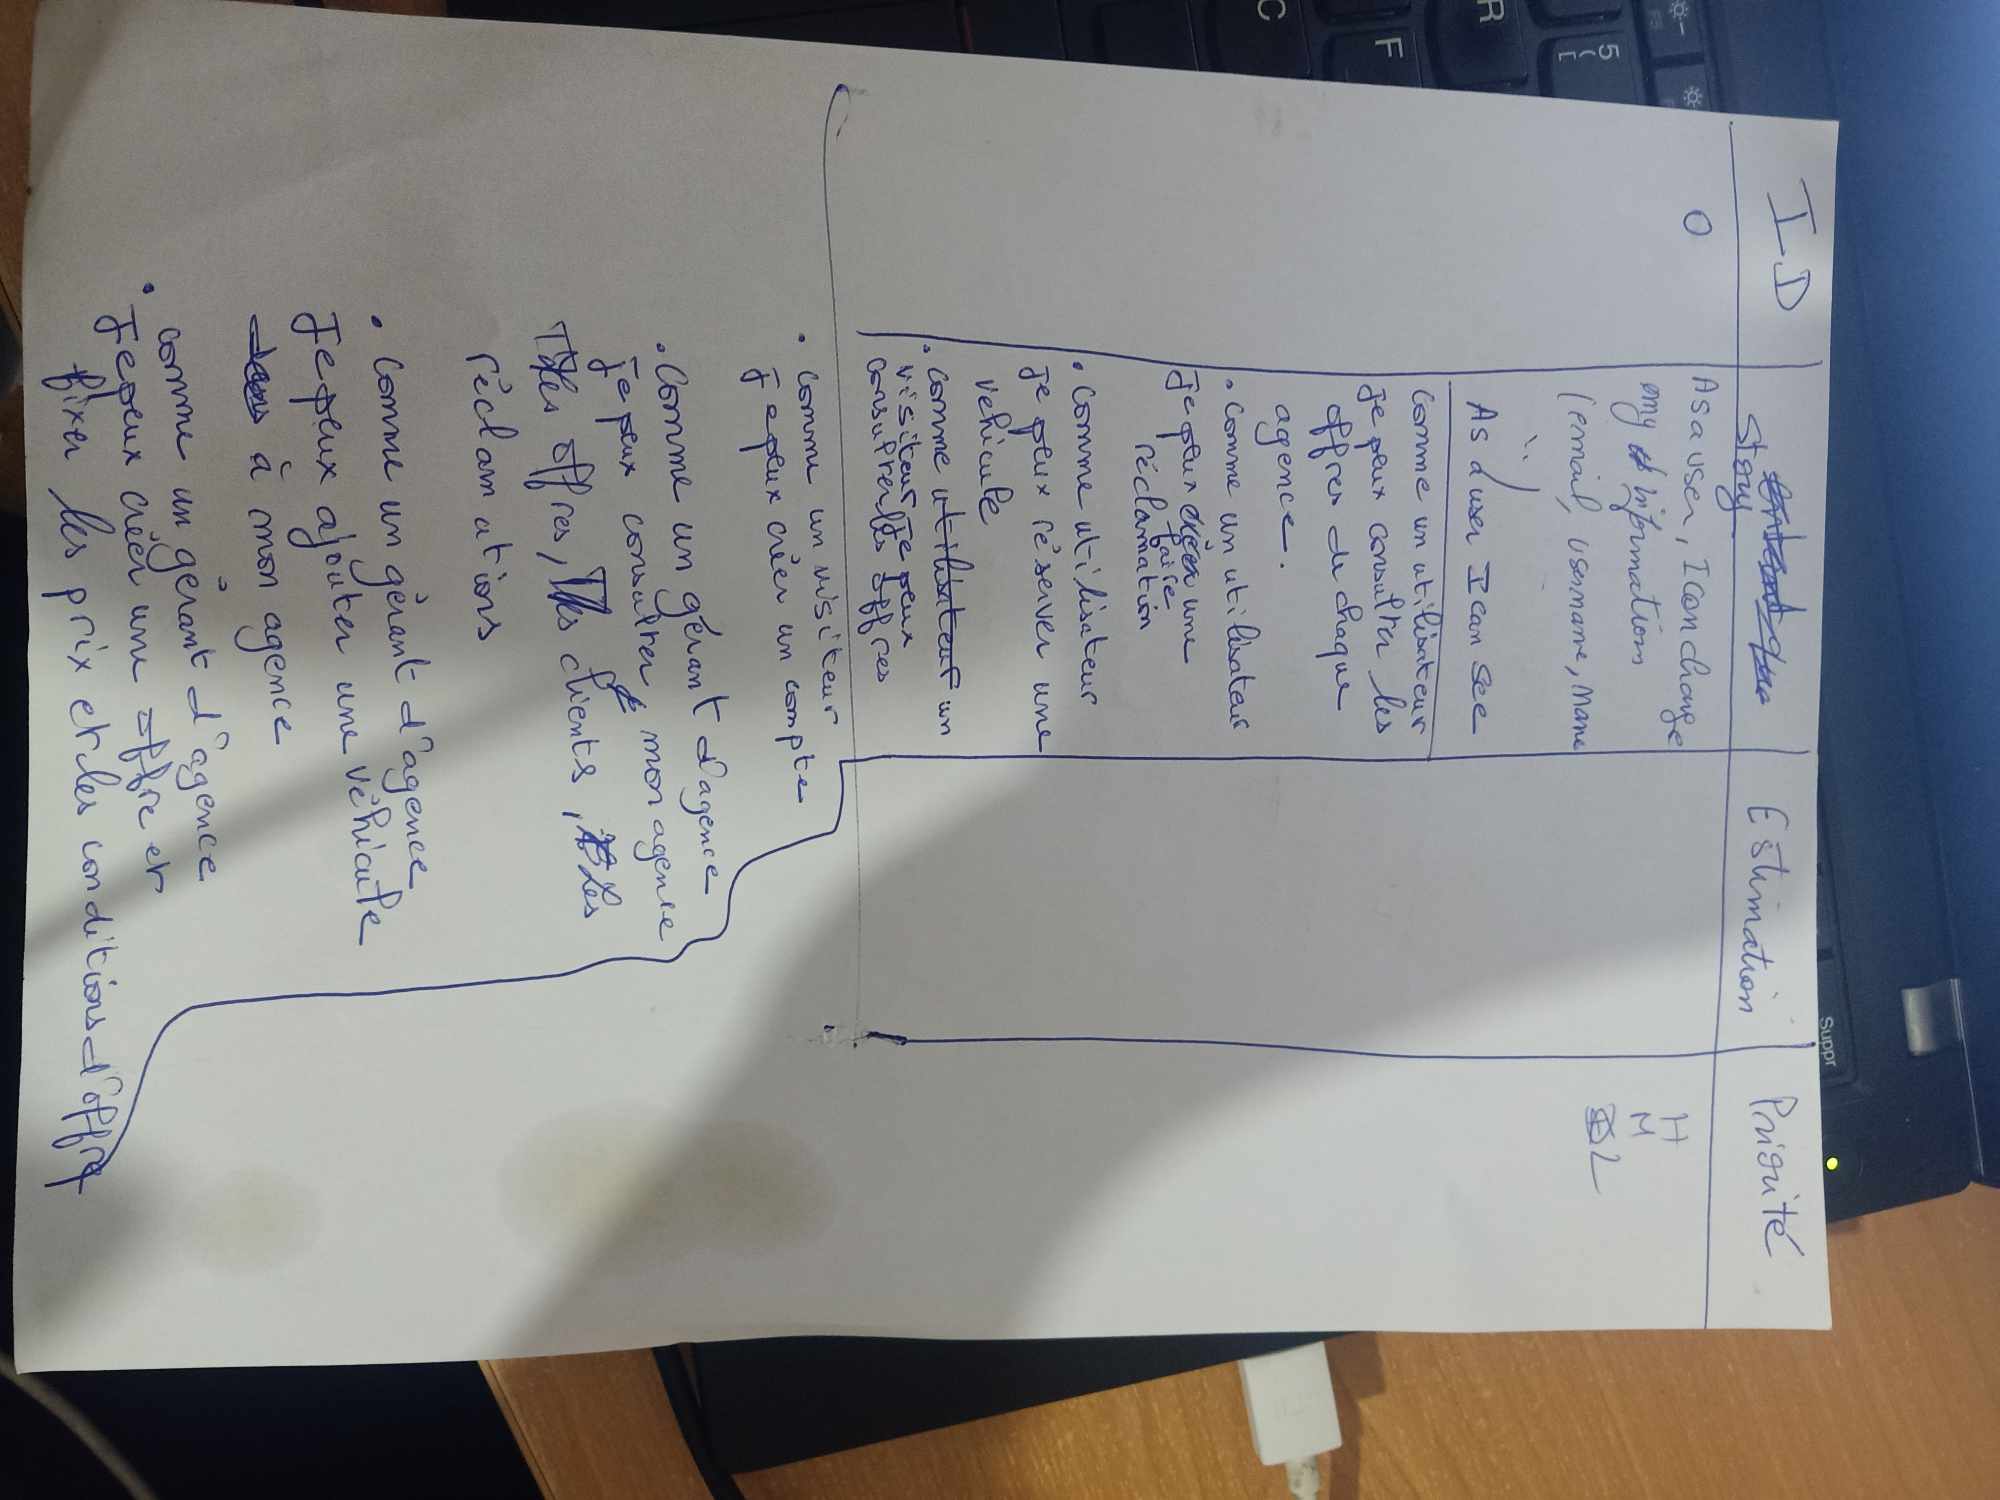 Suppr
ID
Story
Estimation
Priorité
0
As a user, I can change
my informations
(email, username, Name
...)
As a user I can see
H
M
L
Comme un utilisateur
je peux consulter les
offres de chaque
agence.
. Comme un utilisateur
je peux faire une
réclamation
. Comme utilisateur
je peux réserver une
vehicule
. comme un
visiteur, je peux
consulter les offres
. Comme un visiteur
je peux créer un compte
. Comme un gérant d'agence
je peux consulter mon agence
les offres, les clients, Les
réclamations
. Comme un gérant d'agence
je peux ajouter une véhicule
à mon agence
. comme un gérant d'agence
je peux créer une offre et
fixer les prix et les conditions d'offre
5
(
[
R
F
C
F5